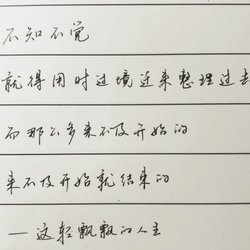 不知不觉
就得用时过境迁来整理过去
而那么多来不及开始的
来不及开始就结束的
—这轻飘飘的人生